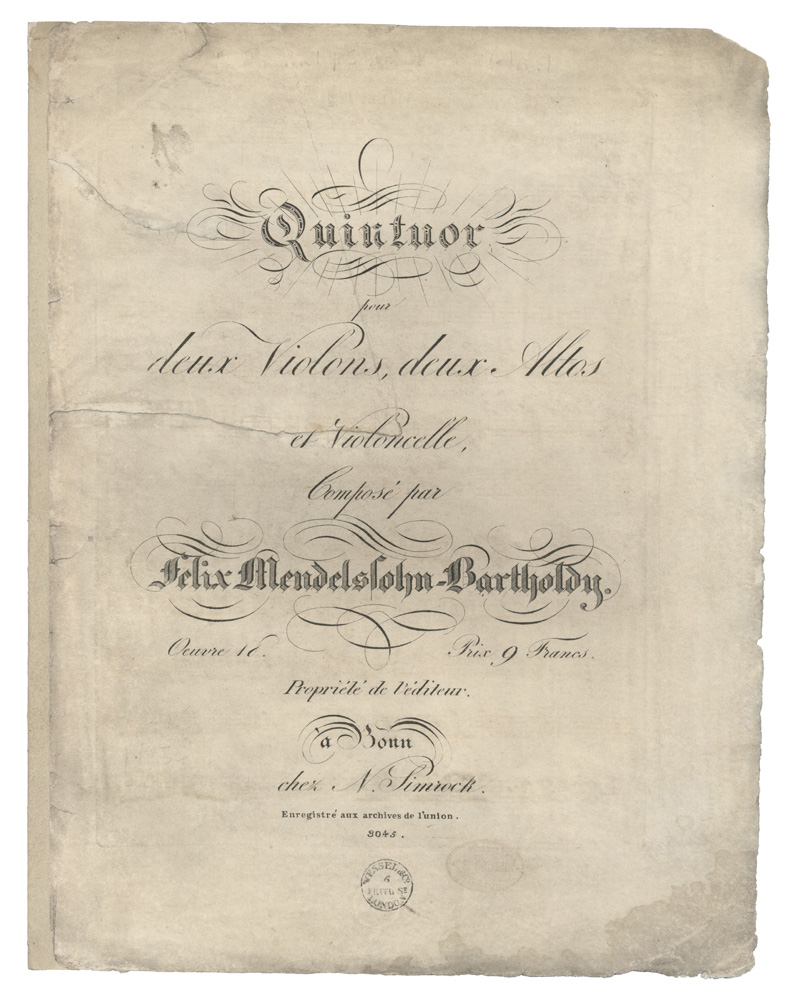 Quintuor
pour
deux Violons, deux Altos
et Violoncelle,
Composé par
Félix Mendelsſohn-Bartholdy.
Oeuvre 18. Prix 9 Francs.
Propriété de l'éditeur.
à Bonn
chez N. Simrock.
Enregistré aux archives de l'union.
3045.
WESSEL & Co
6
FRITH St
LONDON